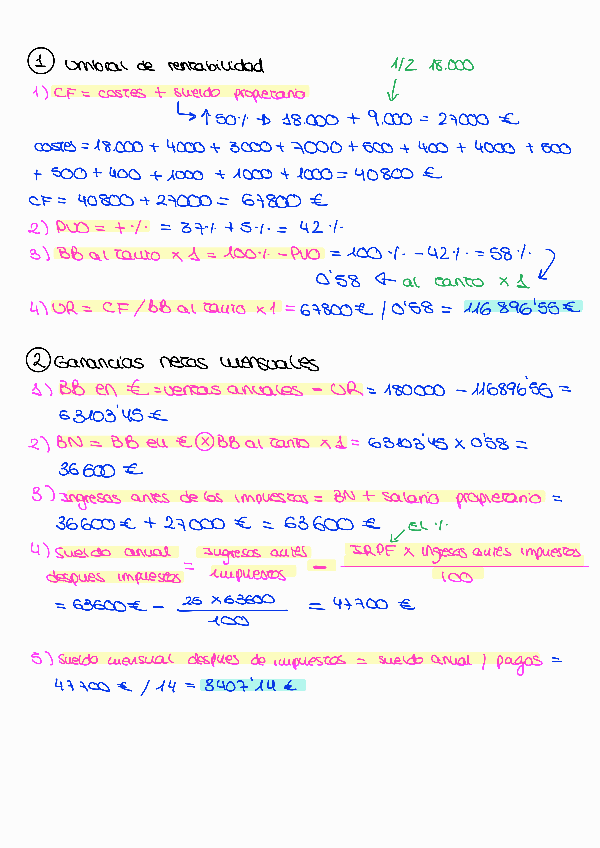 1 Umbral de rentabilidad
1/2 18.000
1) CF = costes + sueldo propietario
↳ ↑ 50% → 18.000 + 9.000 = 27000 €
costes = 18.000 + 4000 + 3000 + 7000 + 500 + 400 + 4000 + 500
+ 500 + 400 + 1000 + 1000 + 1000 = 40800 €
CF = 40800 + 27000 = 67800 €
2) PUO = + % = 37% + 5% = 42%
3) BB al tanto x 1 = 100% - PUO = 100% - 42% = 58%
0'58 ← al tanto x 1
4) UR = CF / BB al tanto x 1 = 67800 € / 0'58 = 116896'55 €
2 Ganancias netas mensuales
1) BB en € = ventas anuales - UR = 180000 - 116896'55 =
63103'45 €
2) BN = BB en € x BB al tanto x 1 = 63103'45 x 0'58 =
36600 €
3) Ingresos antes de los impuestos = BN + salario propietario =
36600 € + 27000 € = 63600 €
el %
4) Sueldo anual despues impuestos = Ingresos antes impuestos - IRPF x ingresos antes impuestos / 100
= 63600 € - 25 x 63600 / 100 = 47700 €
5) Sueldo mensual despues de impuestos = sueldo anual / pagas =
47700 € / 14 = 3407'14 €